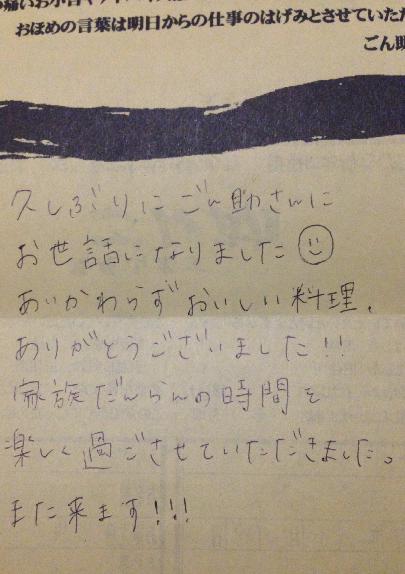 痛いお小言や
おほめの言葉は明日からの仕事のはげみとさせていただ
ごん助
久しぶりにごん助さんに
お世話になりました☺
あいかわらずおいしい料理、
ありがとうございました!!
家族だんらんの時間を
楽しく過ごさせていただきました。
また来ます!!!